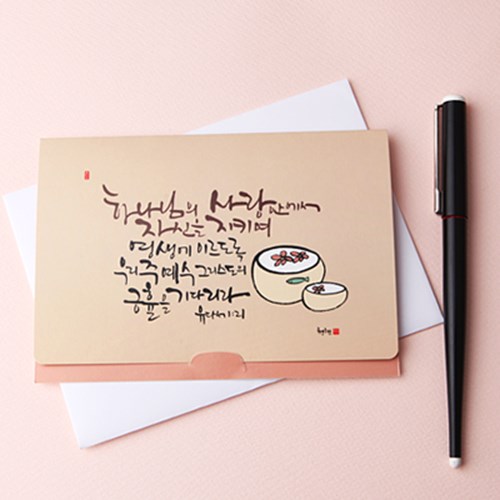 하나님의 사랑 안에서
자신을 지키며
영생에 이르도록
우리 주 예수 그리스도의
긍휼을 기다리라
유다서 1:21